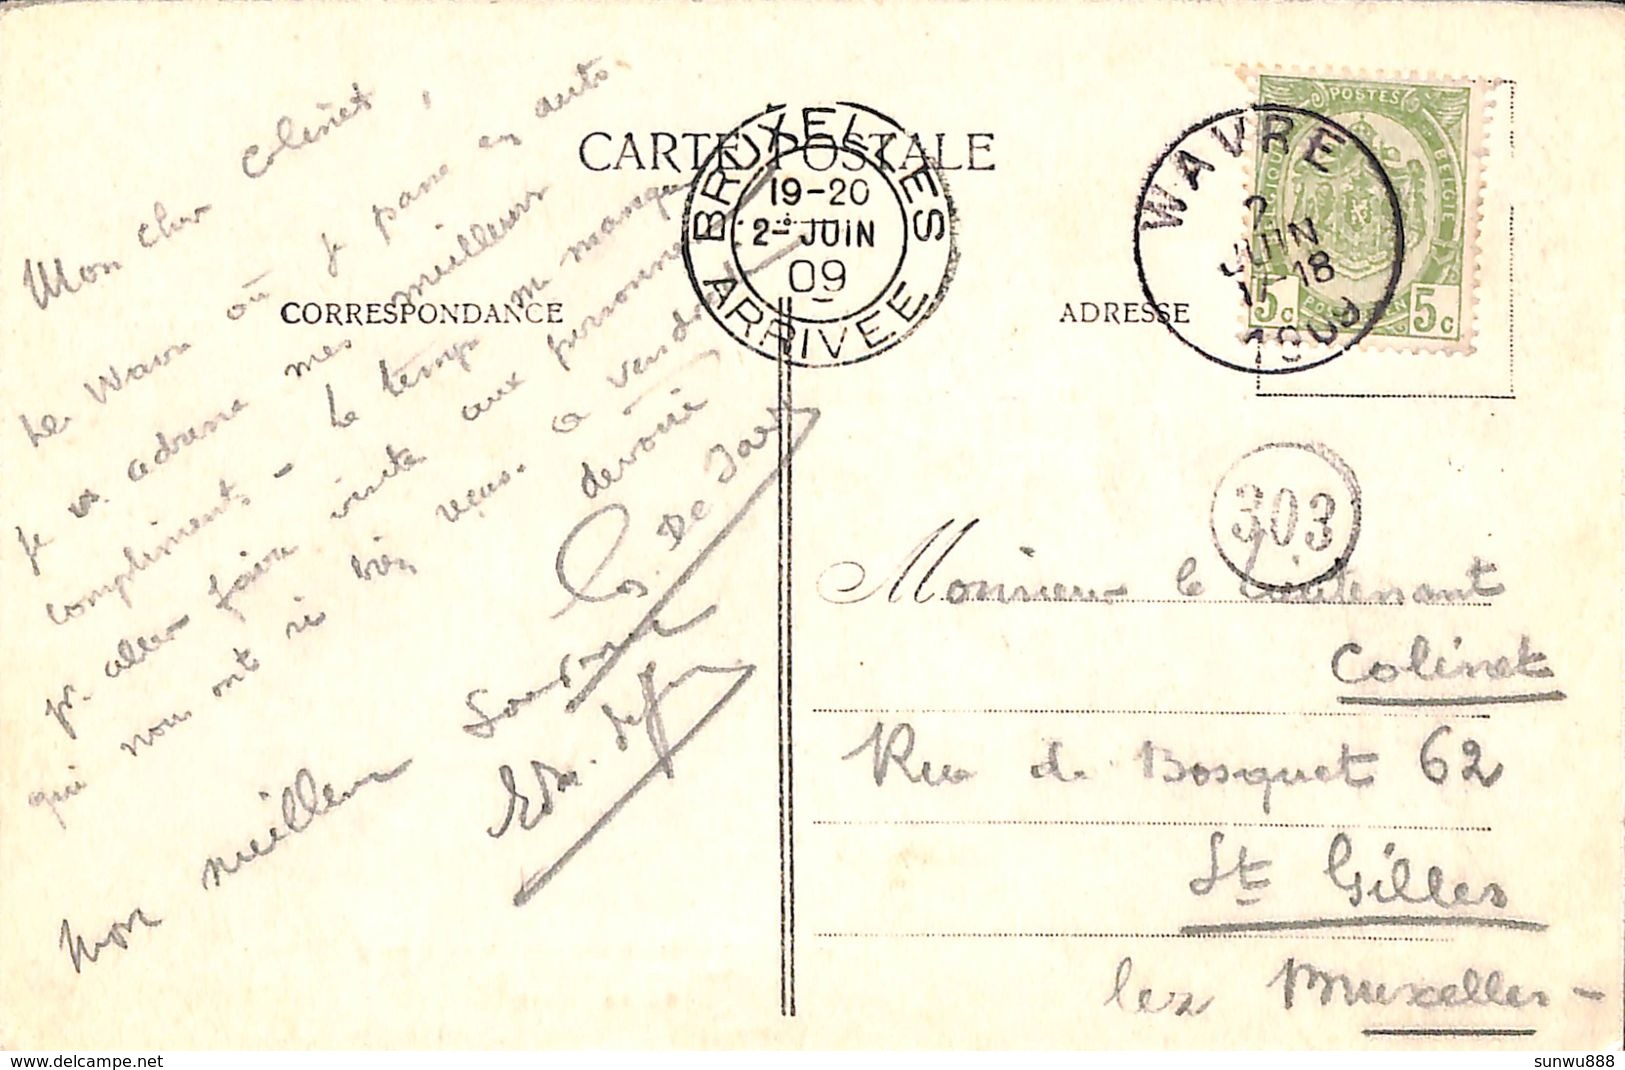 CARTE POSTALE
CORRESPONDANCE
ADRESSE
BRUXELLES
19-20
2 JUIN
09
ARRIVEE
WAVRE
2
JUIN
17-18
1909
POSTES
BELGIE
5c 5c
303
Mon cher Colinet,
De Wavre où je passe en auto
je vs adresse mes meilleurs
compliments - le temps me manque
pr. aller faire visite aux personnes
qui nous ont si bien reçus. a vendredi
devoir
Ls. De
Mon meilleur
Monsieur le Lieutenant
Colinet
Rue de Bosquet 62
St Gilles
lez Bruxelles -
sunwu888